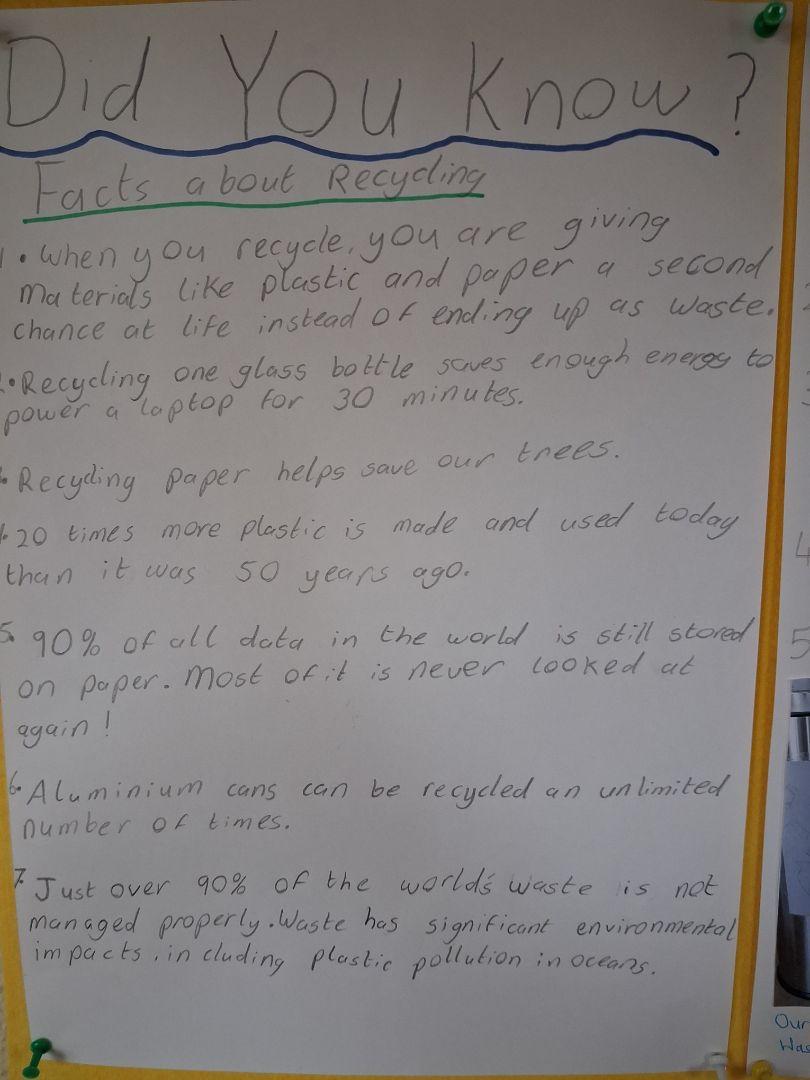 Did You Know?
Facts about Recycling
1. When you recycle, you are giving
materials like plastic and paper a second
chance at life instead of ending up as waste.
2. Recycling one glass bottle saves enough energy to
power a laptop for 30 minutes.
. Recycling paper helps save our trees.
4. 20 times more plastic is made and used today
than it was 50 years ago.
5. 90% of all data in the world is still stored
on paper. Most of it is never looked at
again!
6. Aluminium cans can be recycled an unlimited
number of times.
7. Just over 90% of the world's waste is not
managed properly. Waste has significant environmental
impacts, including plastic pollution in oceans.
4
5
Our